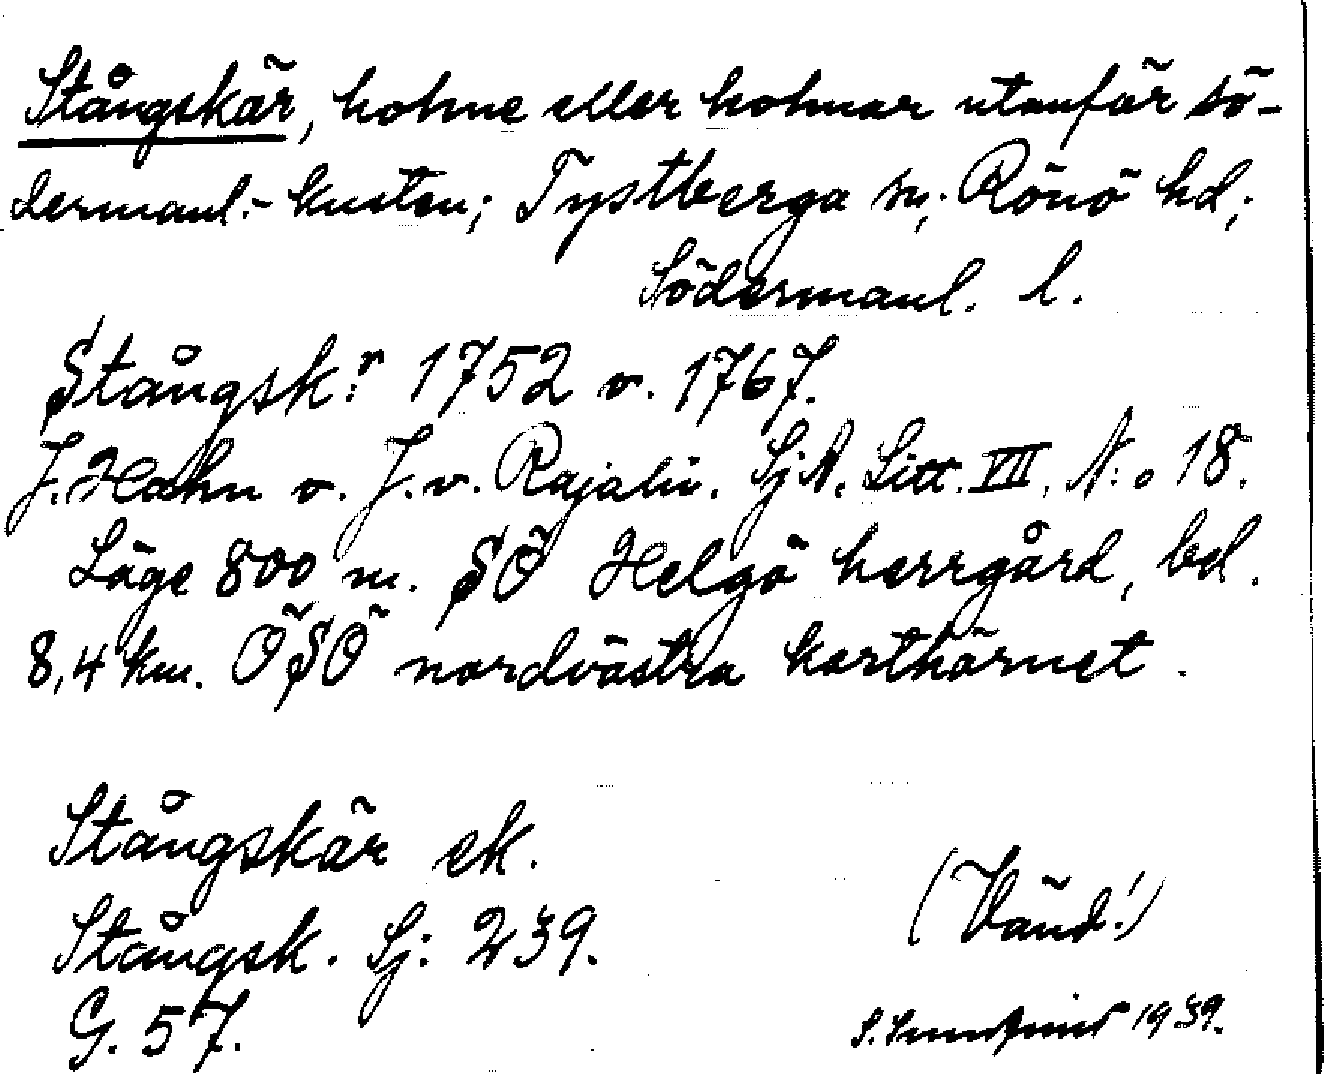 Stångskär, holme eller holmar utanför sö-
dermanl.-kusten; Tystberga sn; Rönö hd;
Södermanl. l.
Stångsk:r 1752 o. 1767.
J. Hahn o. J. v. Rajalin. SjA. Litt. VII. N:o 18.
Läge 800 m. SÖ Helgö herrgård, bel.
8,4 km. ÖSÖ nordvästra karthörnet.
Stångskär ek.
Stångsk. Sj: 239.
G. 57.
(Vänd!)
S. 1939.